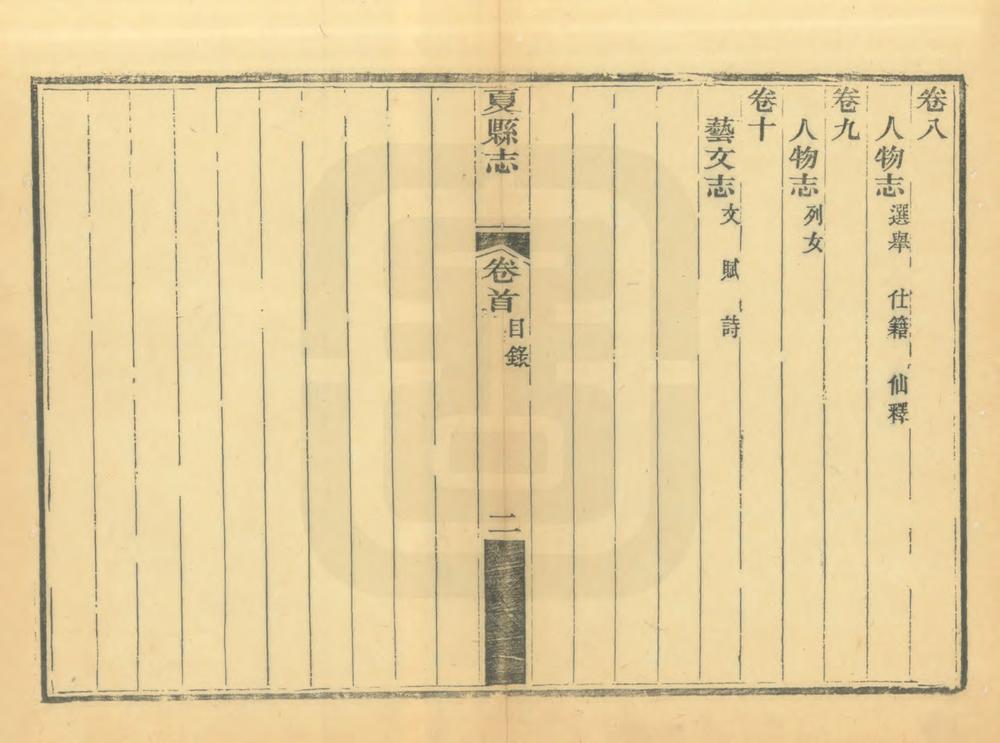 卷八
人物志 選舉 仕籍 仙釋
卷九
人物志 列女
卷十
藝文志 文 賦 詩
夏縣志 卷首 目錄 二